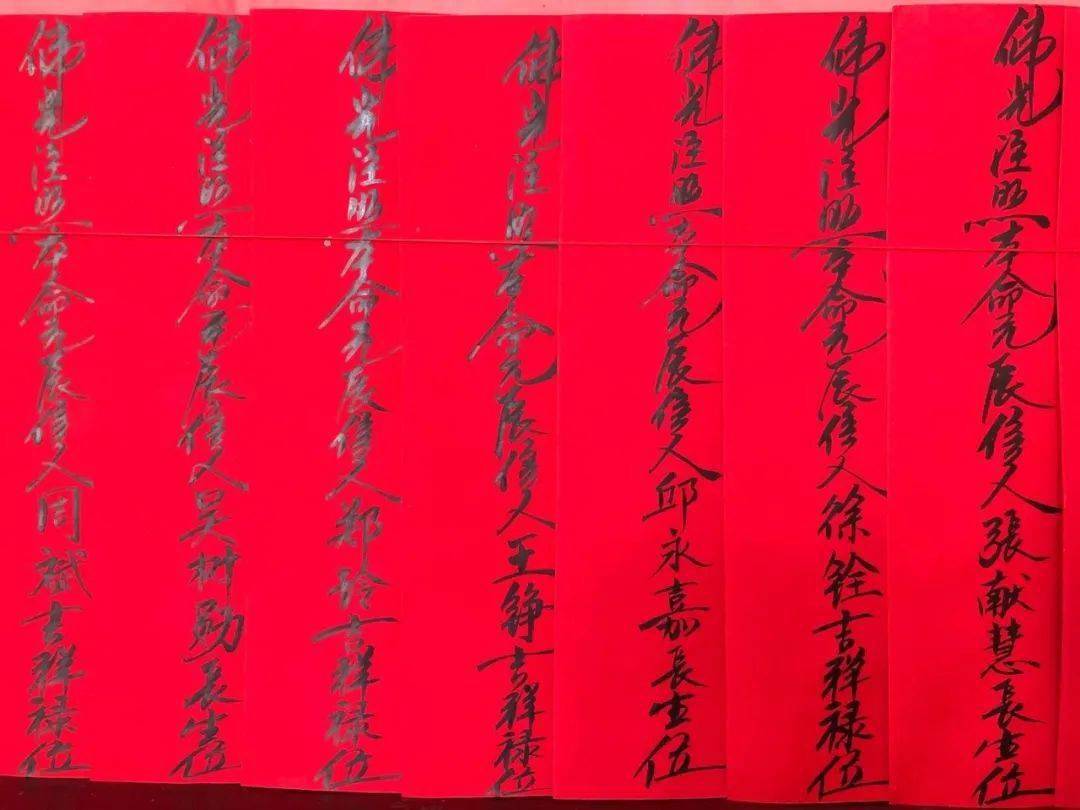 佛光注照本命元辰信人張献慧長生位
佛光注照本命元辰信人徐铨吉祥禄位
佛光注照本命元辰信人邱永嘉長生位
佛光注照本命元辰信人王錚吉祥禄位
佛光注照本命元辰信人郑玲吉祥禄位
佛光注照本命元辰信人吴树勋長生位
佛光注照本命元辰信人周斌吉祥禄位